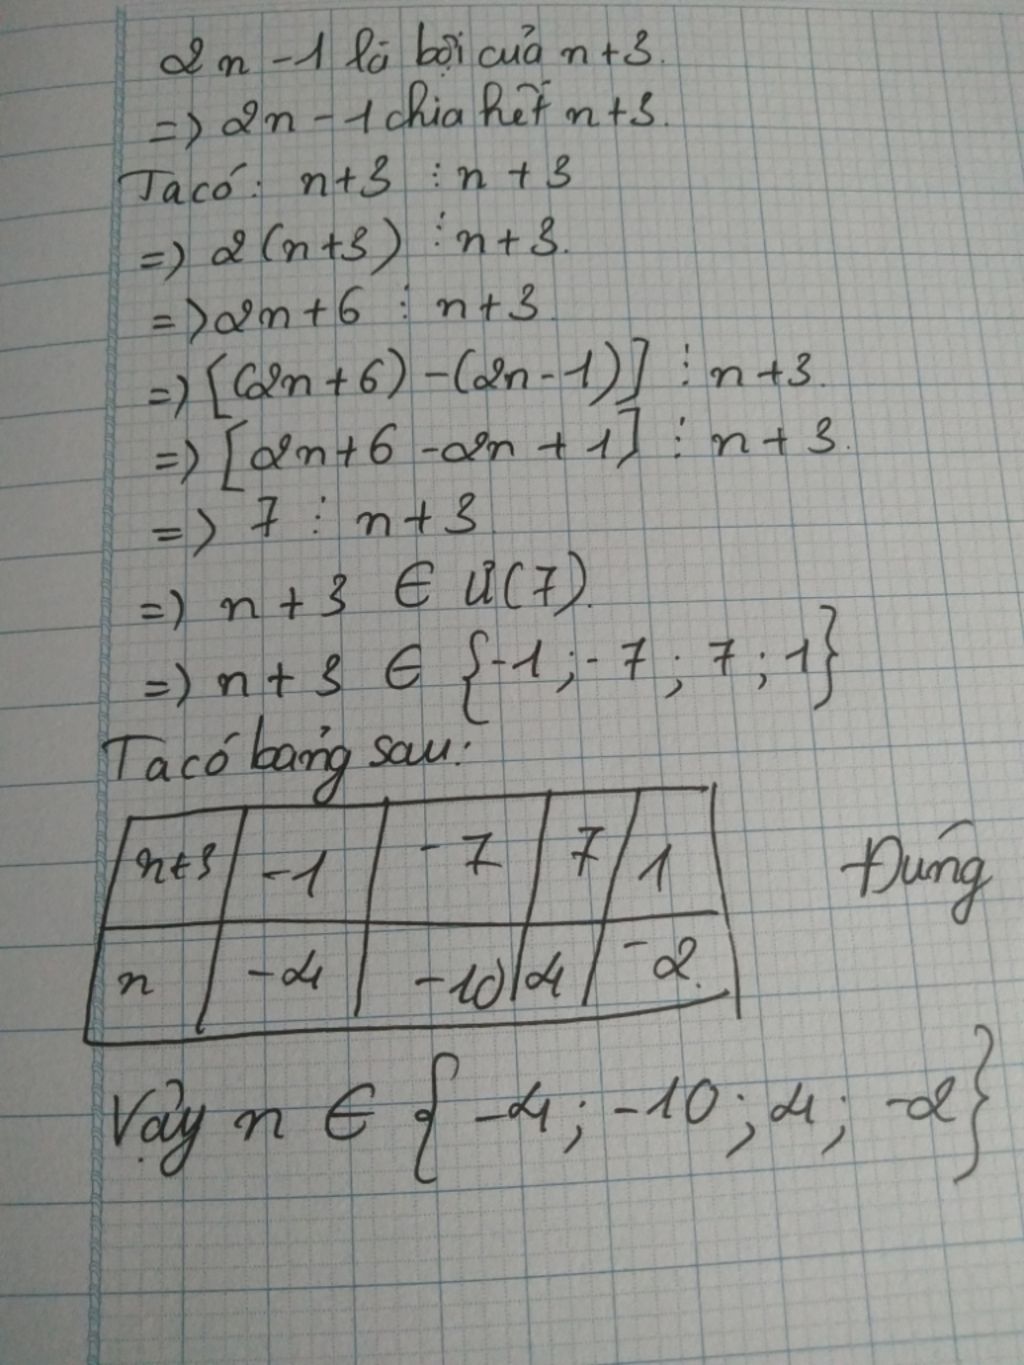 2n - 1 là bội của n + 3.
=> 2n - 1 chia hết n + 3.
Ta có: n + 3 ⋮ n + 3
=> 2(n + 3) ⋮ n + 3.
=> 2n + 6 ⋮ n + 3
=> [(2n + 6) - (2n - 1)] ⋮ n + 3.
=> [2n + 6 - 2n + 1] ⋮ n + 3.
=> 7 ⋮ n + 3
=> n + 3 ∈ Ư(7).
=> n + 3 ∈ {-1; -7; 7; 1}
Ta có bảng sau:
n+3 -1 -7 7 1
Đúng
n -4 -10 4 -2.
Vậy n ∈ {-4; -10; 4; -2}